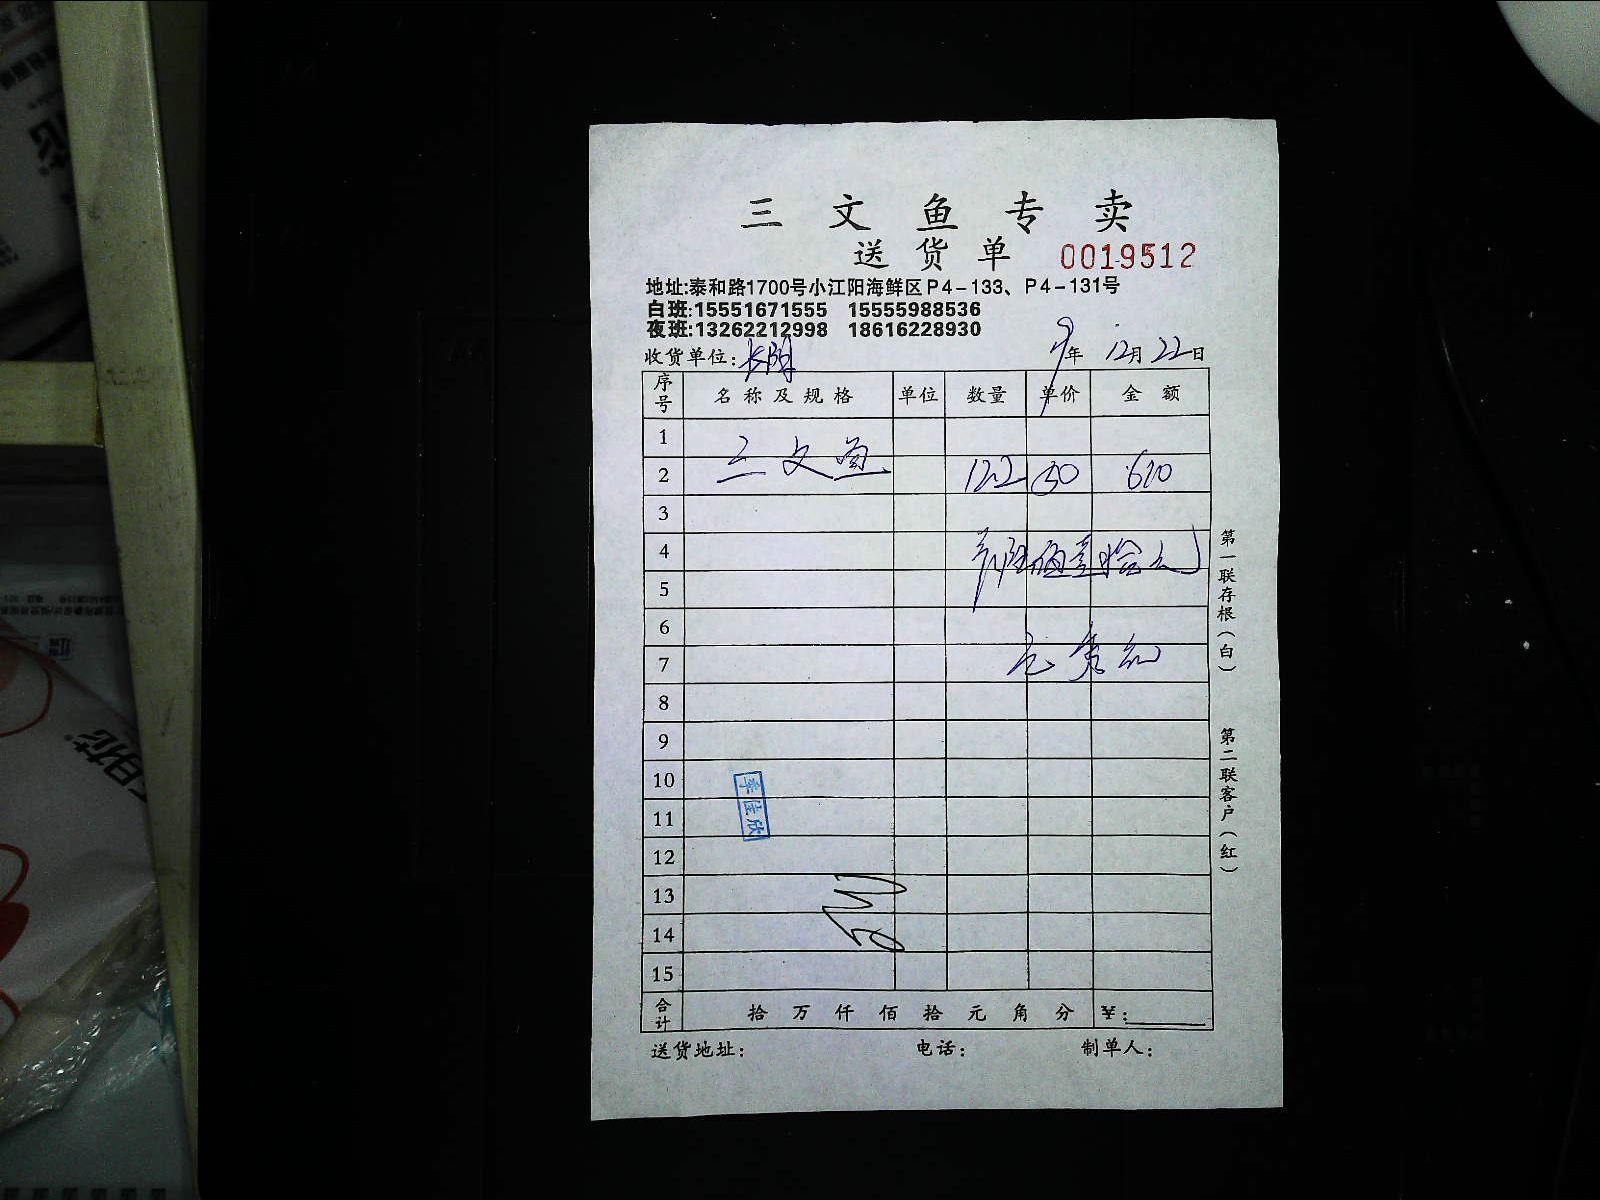 三文鱼专卖
送货单 0019512
地址:泰和路1700号小江阳海鲜区P4-133、P4-131号
白班:15551671555 15555988536
夜班:13262212998 18616228930
收货单位: 长阳 9年 12月 22日
序号 名称及规格 单位 数量 单价 金额
1
2 三文鱼 12.2 50 610
3
4 陆佰壹拾元
5
6
7
8
9
10
11
12
13
14
15
李佳欣
合计 拾万仟佰拾元角分 ¥:
送货地址: 电话: 制单人:
第一联存根(白)
第二联客户(红)